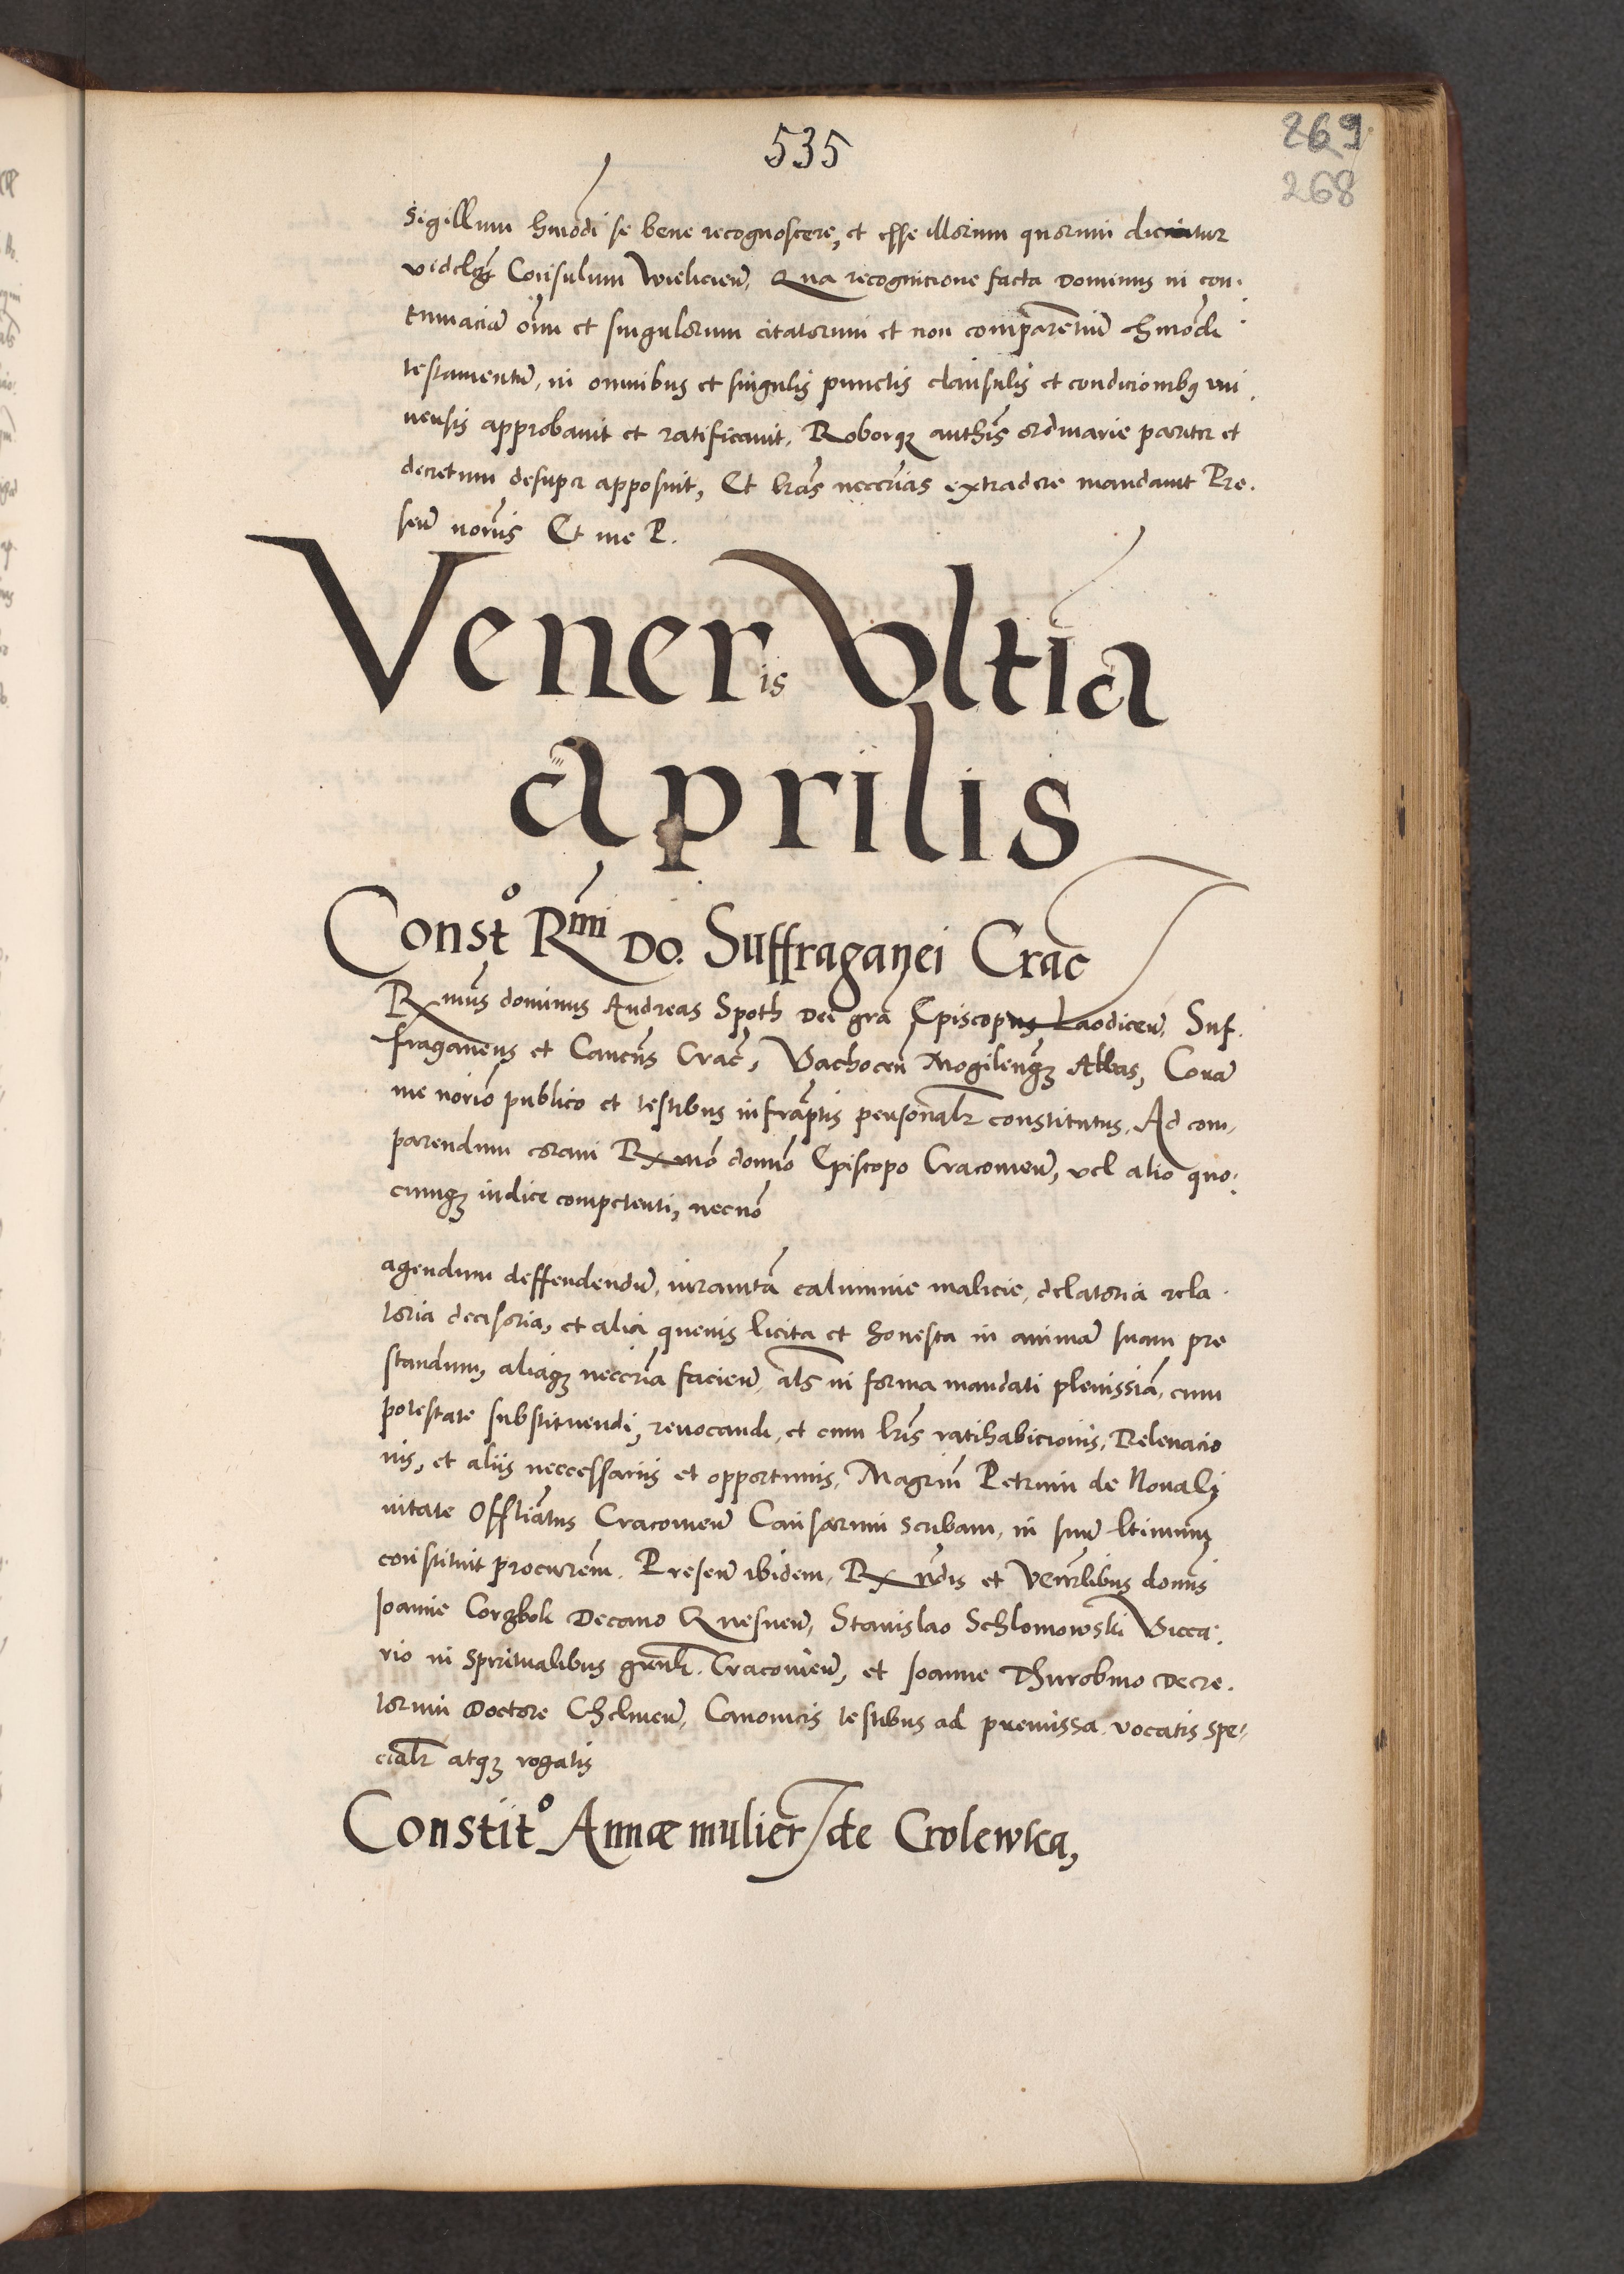 535
269
268
Sigillum hmodi se bene recognoscere, et esse illorum quorum dicitur
videlꝫ Consulum Wielicien̄, Qua recognicione facta Dominus in con-
tumaciā om̄ et singulorum citatorum et non comparentiū hmōdi
testamentū, in omnibus et singulis punctis clausulis et condicionibꝫ uni
uersis approbauit et ratificauit, Roborqꝫ authēs ordinarie pariter et
decretum desuper apposuit, Et lrās neccrias extradere mandauit Pre-
sen̄ nor̄iis Et me P.
Veneris Vltīa
aprilis
Constᵒ Rmi DO. Suffraganei Crac
Rxmus dominus Andreas Spoth Dei gra Episcopus Laodicen̄, Suf-
fraganeus et Cancūs Crac̄, Vachocen̄ Mogilenqꝫ Abbas, Corā
me norio publico et testibus infrāptis personalr constitutus, Ad com-
parendum coram Rxmo domio Episcopo Cracouien̄, vel alio quo-
cumqꝫ iudice competenti, necnō
agendum deffendendū, iuramtā calumnie malicie, delatoria rela-
toria decisoria, et alia queuis licita et honesta in animā suam pre
standum, aliaqꝫ neccria facien̄, als in forma mandati plenissiā, cum
potestate substituendi, reuocandi, et cum lris ratihabicionis, Releuacio
nis, et aliis neccessariis et opportunis, Magrum Petrum de Noualj
uitate Offliatus Cracouien̄ Causarum scribam, in suum ltimum
constituit procurem. Presen̄ ibidem, Rxndis et Venerlibus domis
Joanne Corzbok Decano Gnesnen̄, Stanislao Schlomowski Vicca-
rio in spiritualibus gnrali Cracouien̄, et Joanne Thurobino Decre-
torum Doctore Chelmen̄, Canonicis testibus ad premissa vocatis spe-
cialr atqꝫ rogatis
Constitᵒ Annæ mulier de Crolewka,